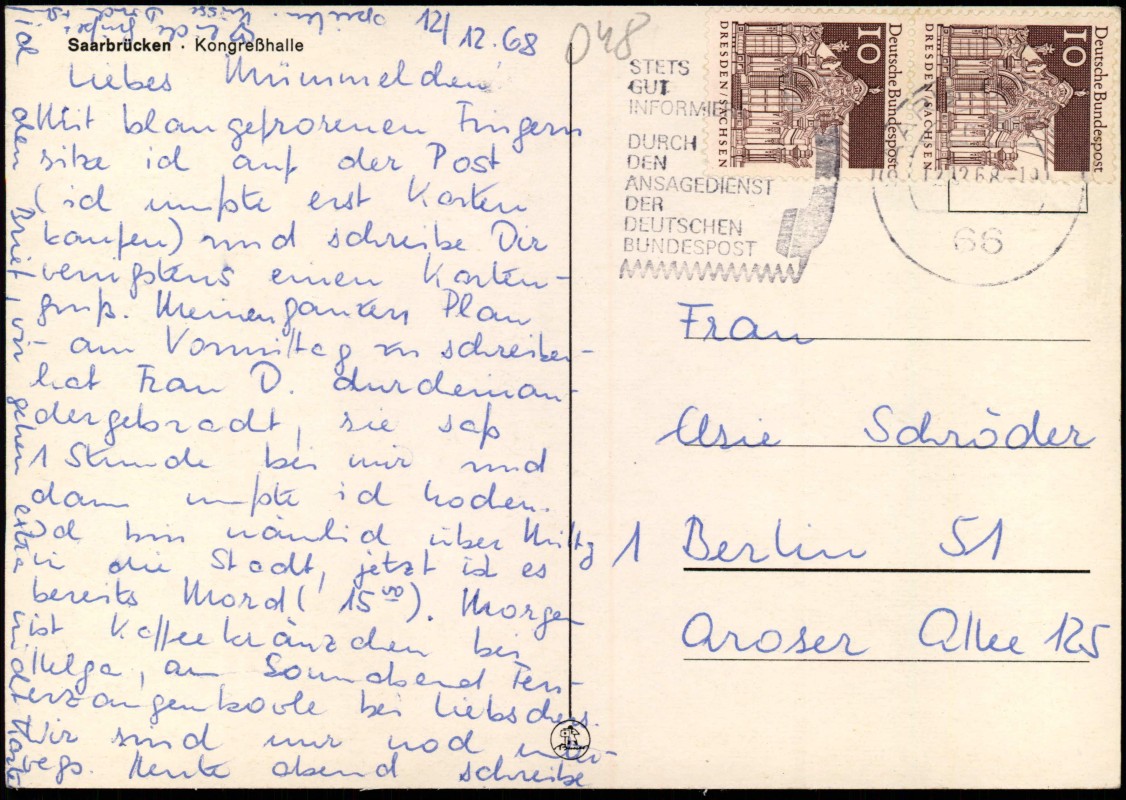 12/12.68
048
Saarbrücken · Kongreßhalle
Liebes Mümmelchen!
Mit blaugefrorenen Fingern
sitze ich auf der Post
(ich mußte erst Karten
kaufen) und schreibe Dir
wenigstens einen Karten-
gruß. Meinen ganzen Plan
- am Vormittag zu schreiben -
hat Frau D. durcheinan-
dergebracht, sie saß
1 Stunde bei mir und
dann mußte ich kochen.
Ich bin nämlich über Mittg
in die Stadt, jetzt ist es
bereits Mord (15 00). Morgen
ist Kaffeekränzchen bei
Helga, am Sonnabend Feu-
erzangenbowle bei Liebschers.
Wir sind nur noch unter-
wegs. Heute abend schreibe
ich den Brief, wir gehen extra nicht
STETS
GUT
INFORMIERT
DURCH
DEN
ANSAGEDIENST
DER
DEUTSCHEN
BUNDESPOST
10
Deutsche Bundespost
DRESDEN/SACHSEN
10
Deutsche Bundespost
DRESDEN/SACHSEN
12.12.68-19
66
Frau
Usie Schröder
1 Berlin 51
Aroser Allee 125